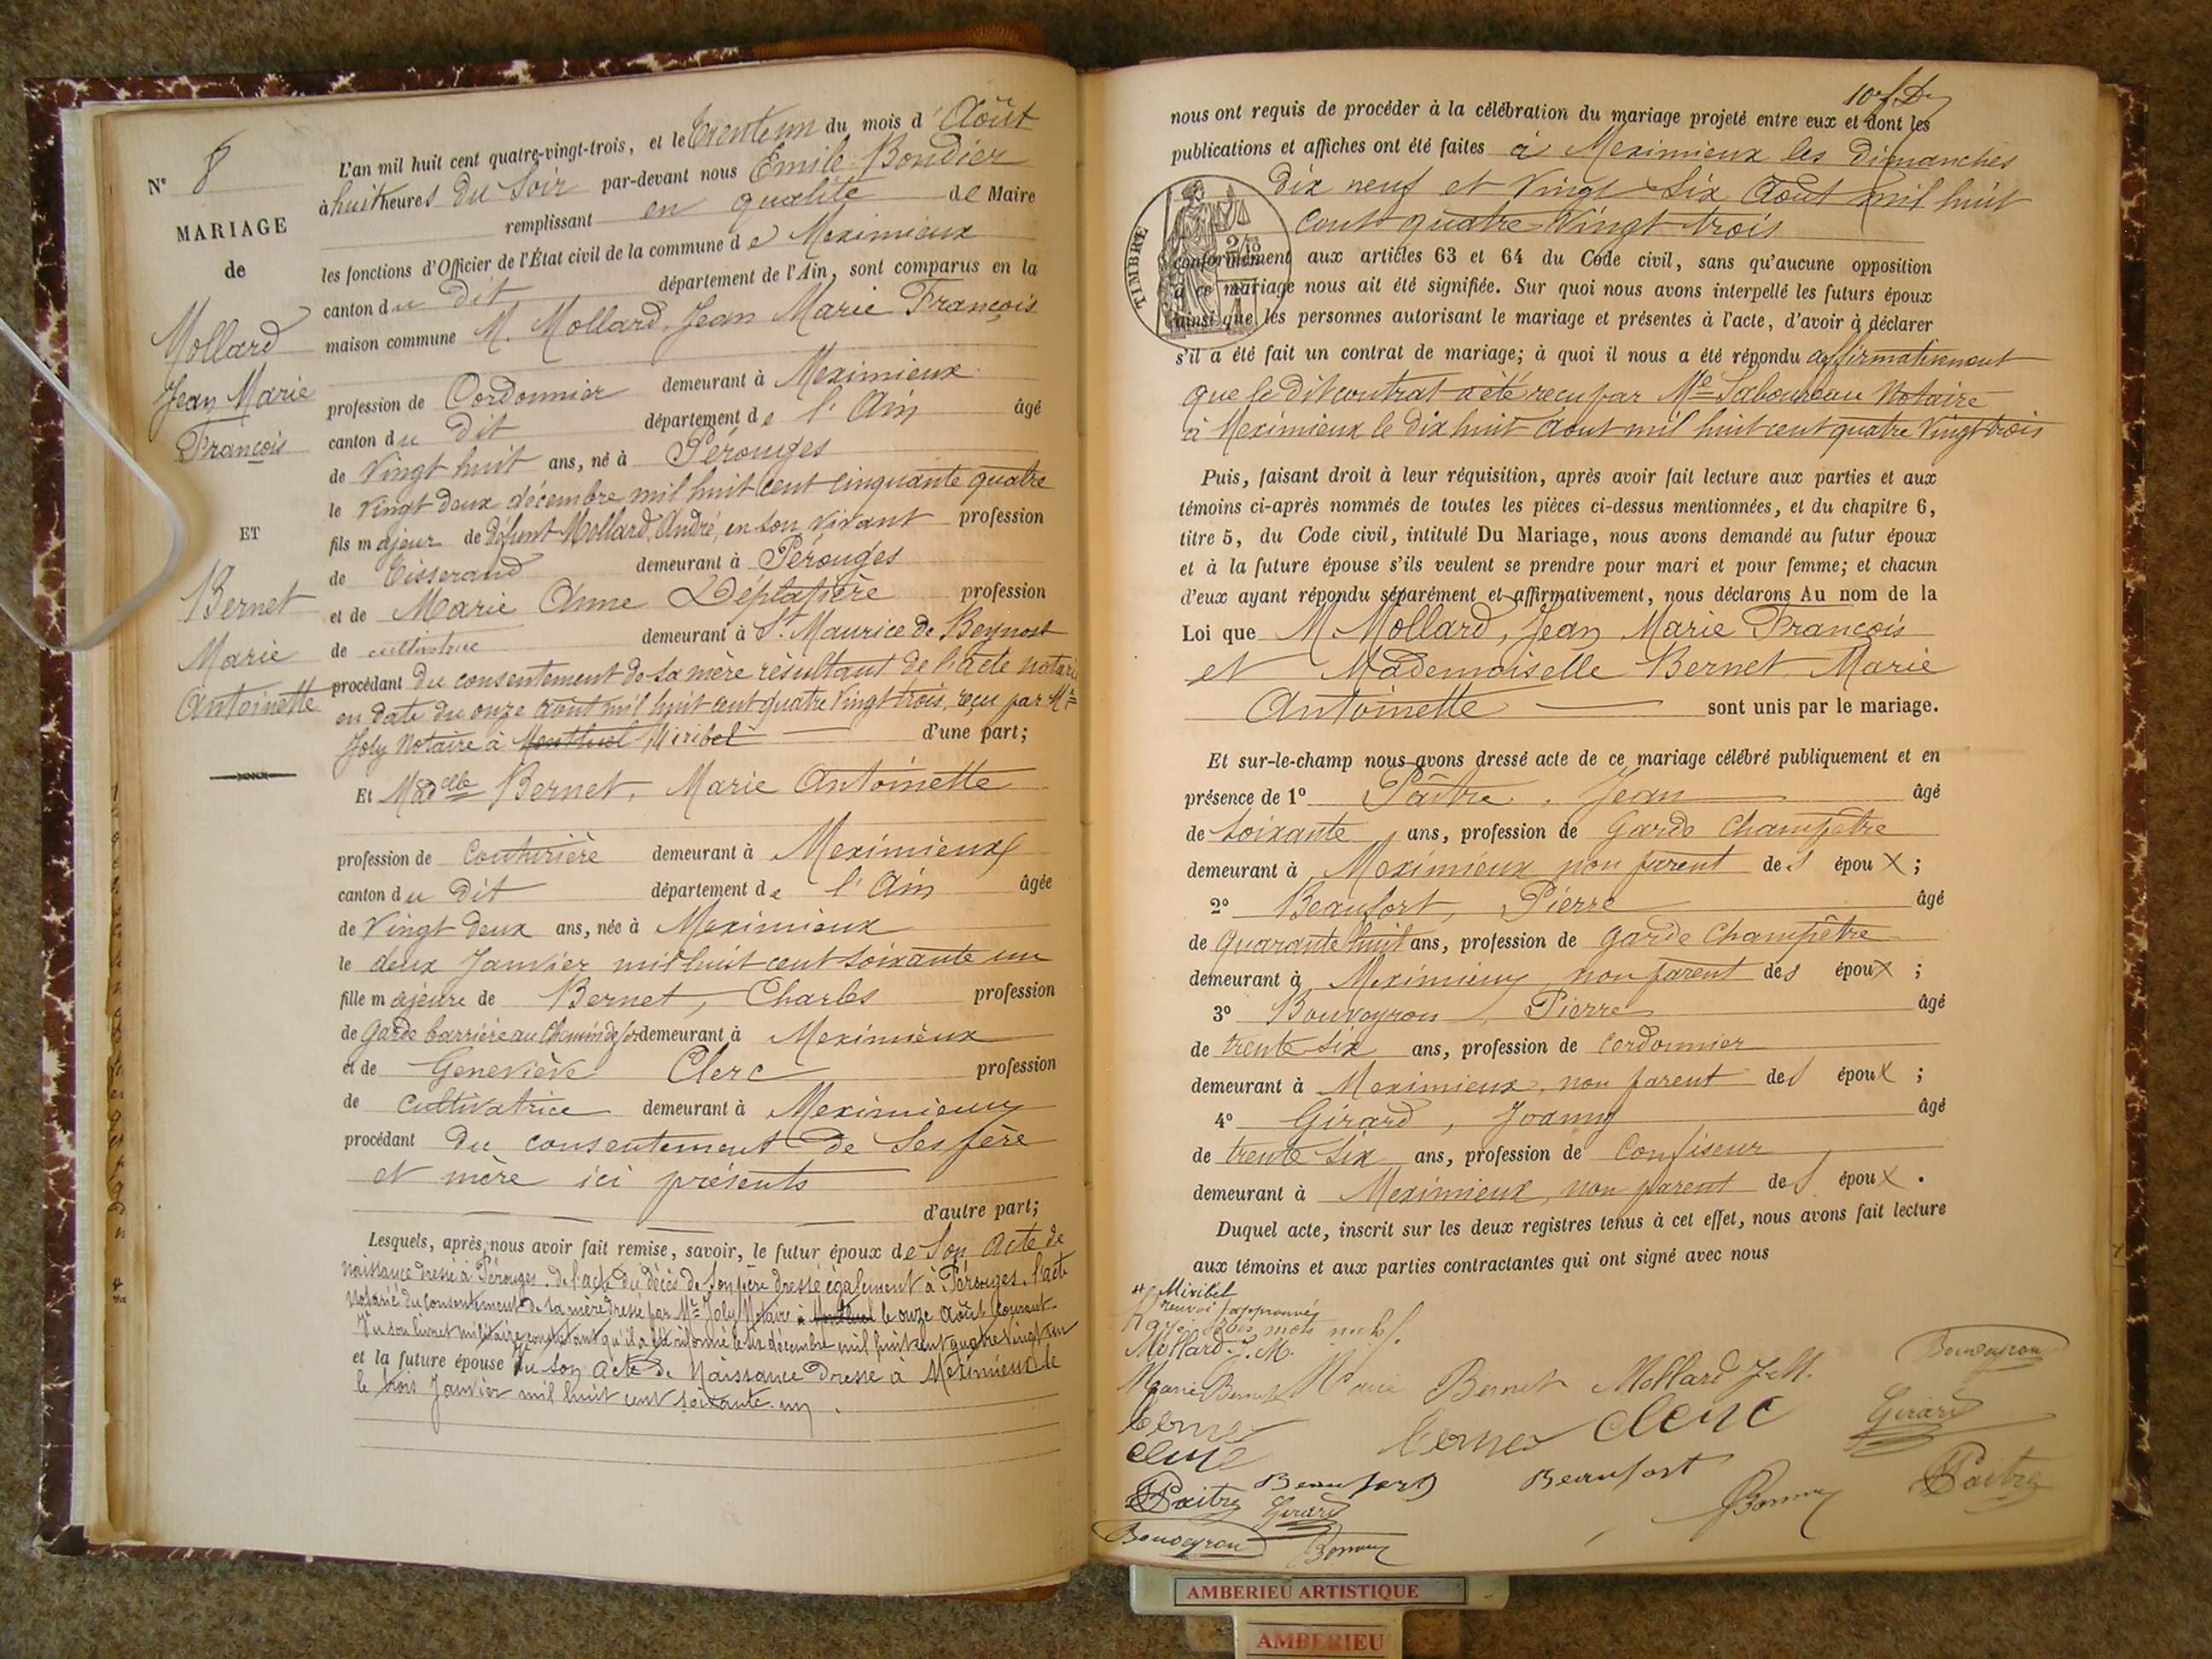 N° 8
MARIAGE
de
Mollard
Jean Marie
François
ET
Bernet
Marie
Antoinette
L'an mil huit cent quatre-vingt-trois, et le trente un du mois d'Août
à huit heures du Soir par-devant nous Emile Bondier
remplissant en qualité de Maire
les fonctions d'Officier de l'État civil de la commune de Meximieux
canton du dit département de l'Ain, sont comparus en la
maison commune M. Mollard, Jean Marie François
profession de Cordonnier demeurant à Meximieux
canton du dit département de l'Ain âgé
de Vingt huit ans, né à Pérouges
le Vingt deux décembre mil huit cent cinquante quatre
fils majeur de Défunt Mollard, André, en son vivant profession
de Tisserand demeurant à Pérouges
et de Marie Anne Déplatière profession
de cultivatrice demeurant à St. Maurice de Beynost
procédant du consentement de sa mère résultant de l'acte notarié
en date du onze août mil huit cent quatre vingt trois, reçu par Me
Joly Notaire à Montluel Miribel d'une part;
Et Madelle Bernet, Marie Antoinette
profession de Couturière demeurant à Meximieux
canton du dit département de l'Ain âgée
de Vingt deux ans, née à Meximieux
le deux Janvier mil huit cent soixante un
fille majeure de Bernet, Charles profession
de Garde barrière au Chemin de fer demeurant à Meximieux
et de Geneviève Clerc profession
de Cultivatrice demeurant à Meximieux
procédant du consentement de Ses père
et mère ici présents
d'autre part;
Lesquels, après nous avoir fait remise, savoir, le futur époux de Son acte de
naissance dressé à Pérouges. de l'acte du décès de Son père dressé également à Pérouges. l'acte
notarié du Consentement de sa mère dressé par Me Joly Notaire à Montluel le onze Août Courant.
Vu son livret militaire constatant qu'il a été réformé le décembre mil huit cent quatre vingt un
et la future épouse du Son acte de Naissance Dressé à Meximieux le
le trois Janvier mil huit cent soixante-un.
nous ont requis de procéder à la célébration du mariage projeté entre eux et dont les
publications et affiches ont été faites à Meximieux les dimanches
dix neuf et Vingt Six Août mil huit
cent quatre Vingt trois
TIMBRE
conformément aux articles 63 et 64 du Code civil, sans qu'aucune opposition
à ce mariage nous ait été signifiée. Sur quoi nous avons interpellé les futurs époux
ainsi que les personnes autorisant le mariage et présentes à l'acte, d'avoir à déclarer
s'il a été fait un contrat de mariage; à quoi il nous a été répondu affirmativement
que le dit contrat a été reçu par Me Notaire
à Meximieux le dix huit Aout mil huit cent quatre Vingt trois
Puis, faisant droit à leur réquisition, après avoir fait lecture aux parties et aux
témoins ci-après nommés de toutes les pièces ci-dessus mentionnées, et du chapitre 6,
titre 5, du Code civil, intitulé Du Mariage, nous avons demandé au futur époux
et à la future épouse s'ils veulent se prendre pour mari et pour femme; et chacun
d'eux ayant répondu séparément et affirmativement, nous déclarons Au nom de la
Loi que M. Mollard, Jean Marie François
et Mademoiselle Bernet Marie
Antoinette sont unis par le mariage.
Et sur-le-champ nous avons dressé acte de ce mariage célébré publiquement et en
présence de 1° Paître, Jean âgé
de soixante ans, profession de Garde Champêtre
demeurant à Meximieux non parent des époux;
2° Beaufort, Pierre âgé
de quarante huit ans, profession de garde Champêtre
demeurant à Meximieux non parent des époux;
3° Bouveyron, Pierre âgé
de trente six ans, profession de Cordonnier
demeurant à Meximieux, non parent des époux;
4° Girard, Joanny âgé
de trente Six ans, profession de Confiseur
demeurant à Meximieux, non parent des époux.
Duquel acte, inscrit sur les deux registres tenus à cet effet, nous avons fait lecture
aux témoins et aux parties contractantes qui ont signé avec nous
Miribel
renvoi approuvé
Rayé trois mots nuls.
Mollard J. M.
Marie Bernet Marie Bernet Mollard J.M. Bouveyron
Bernet Bernet Clerc Girard
Clerc
Paitre Beaufort Beaufort Paitre
Girard
Bouveyron
AMBERIEU ARTISTIQUE
AMBERIEU